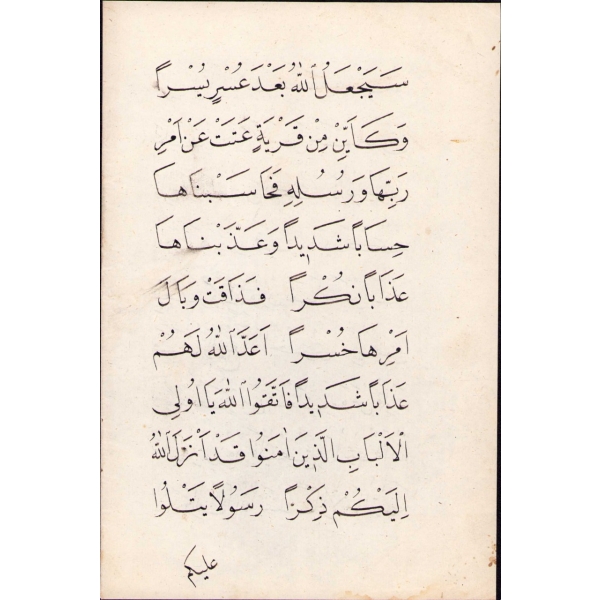 سَيَجْعَلُ اللّٰهُ بَعْدَ عُسْرٍ يُسْراً
وَكَاَيِّنْ مِنْ قَرْيَةٍ عَتَتْ عَنْ اَمْرِ
رَبِّهَا وَرُسُلِهِ فَحَاسَبْنَاهَا
حِسَاباً شَدِيداً وَعَذَّبْنَاهَا
عَذَاباً نُكْراً فَذَاقَتْ وَبَالَ
اَمْرِهَا خُسْراً اَعَدَّ اللّٰهُ لَهُمْ
عَذَاباً شَدِيداً فَاتَّقُوا اللّٰهَ يَا اُولِى
الْاَلْبَابِ الَّذِينَ اٰمَنُوا قَدْ اَنْزَلَ اللّٰهُ
اِلَيْكُمْ ذِكْراً رَسُولاً يَتْلُوا
عليكم